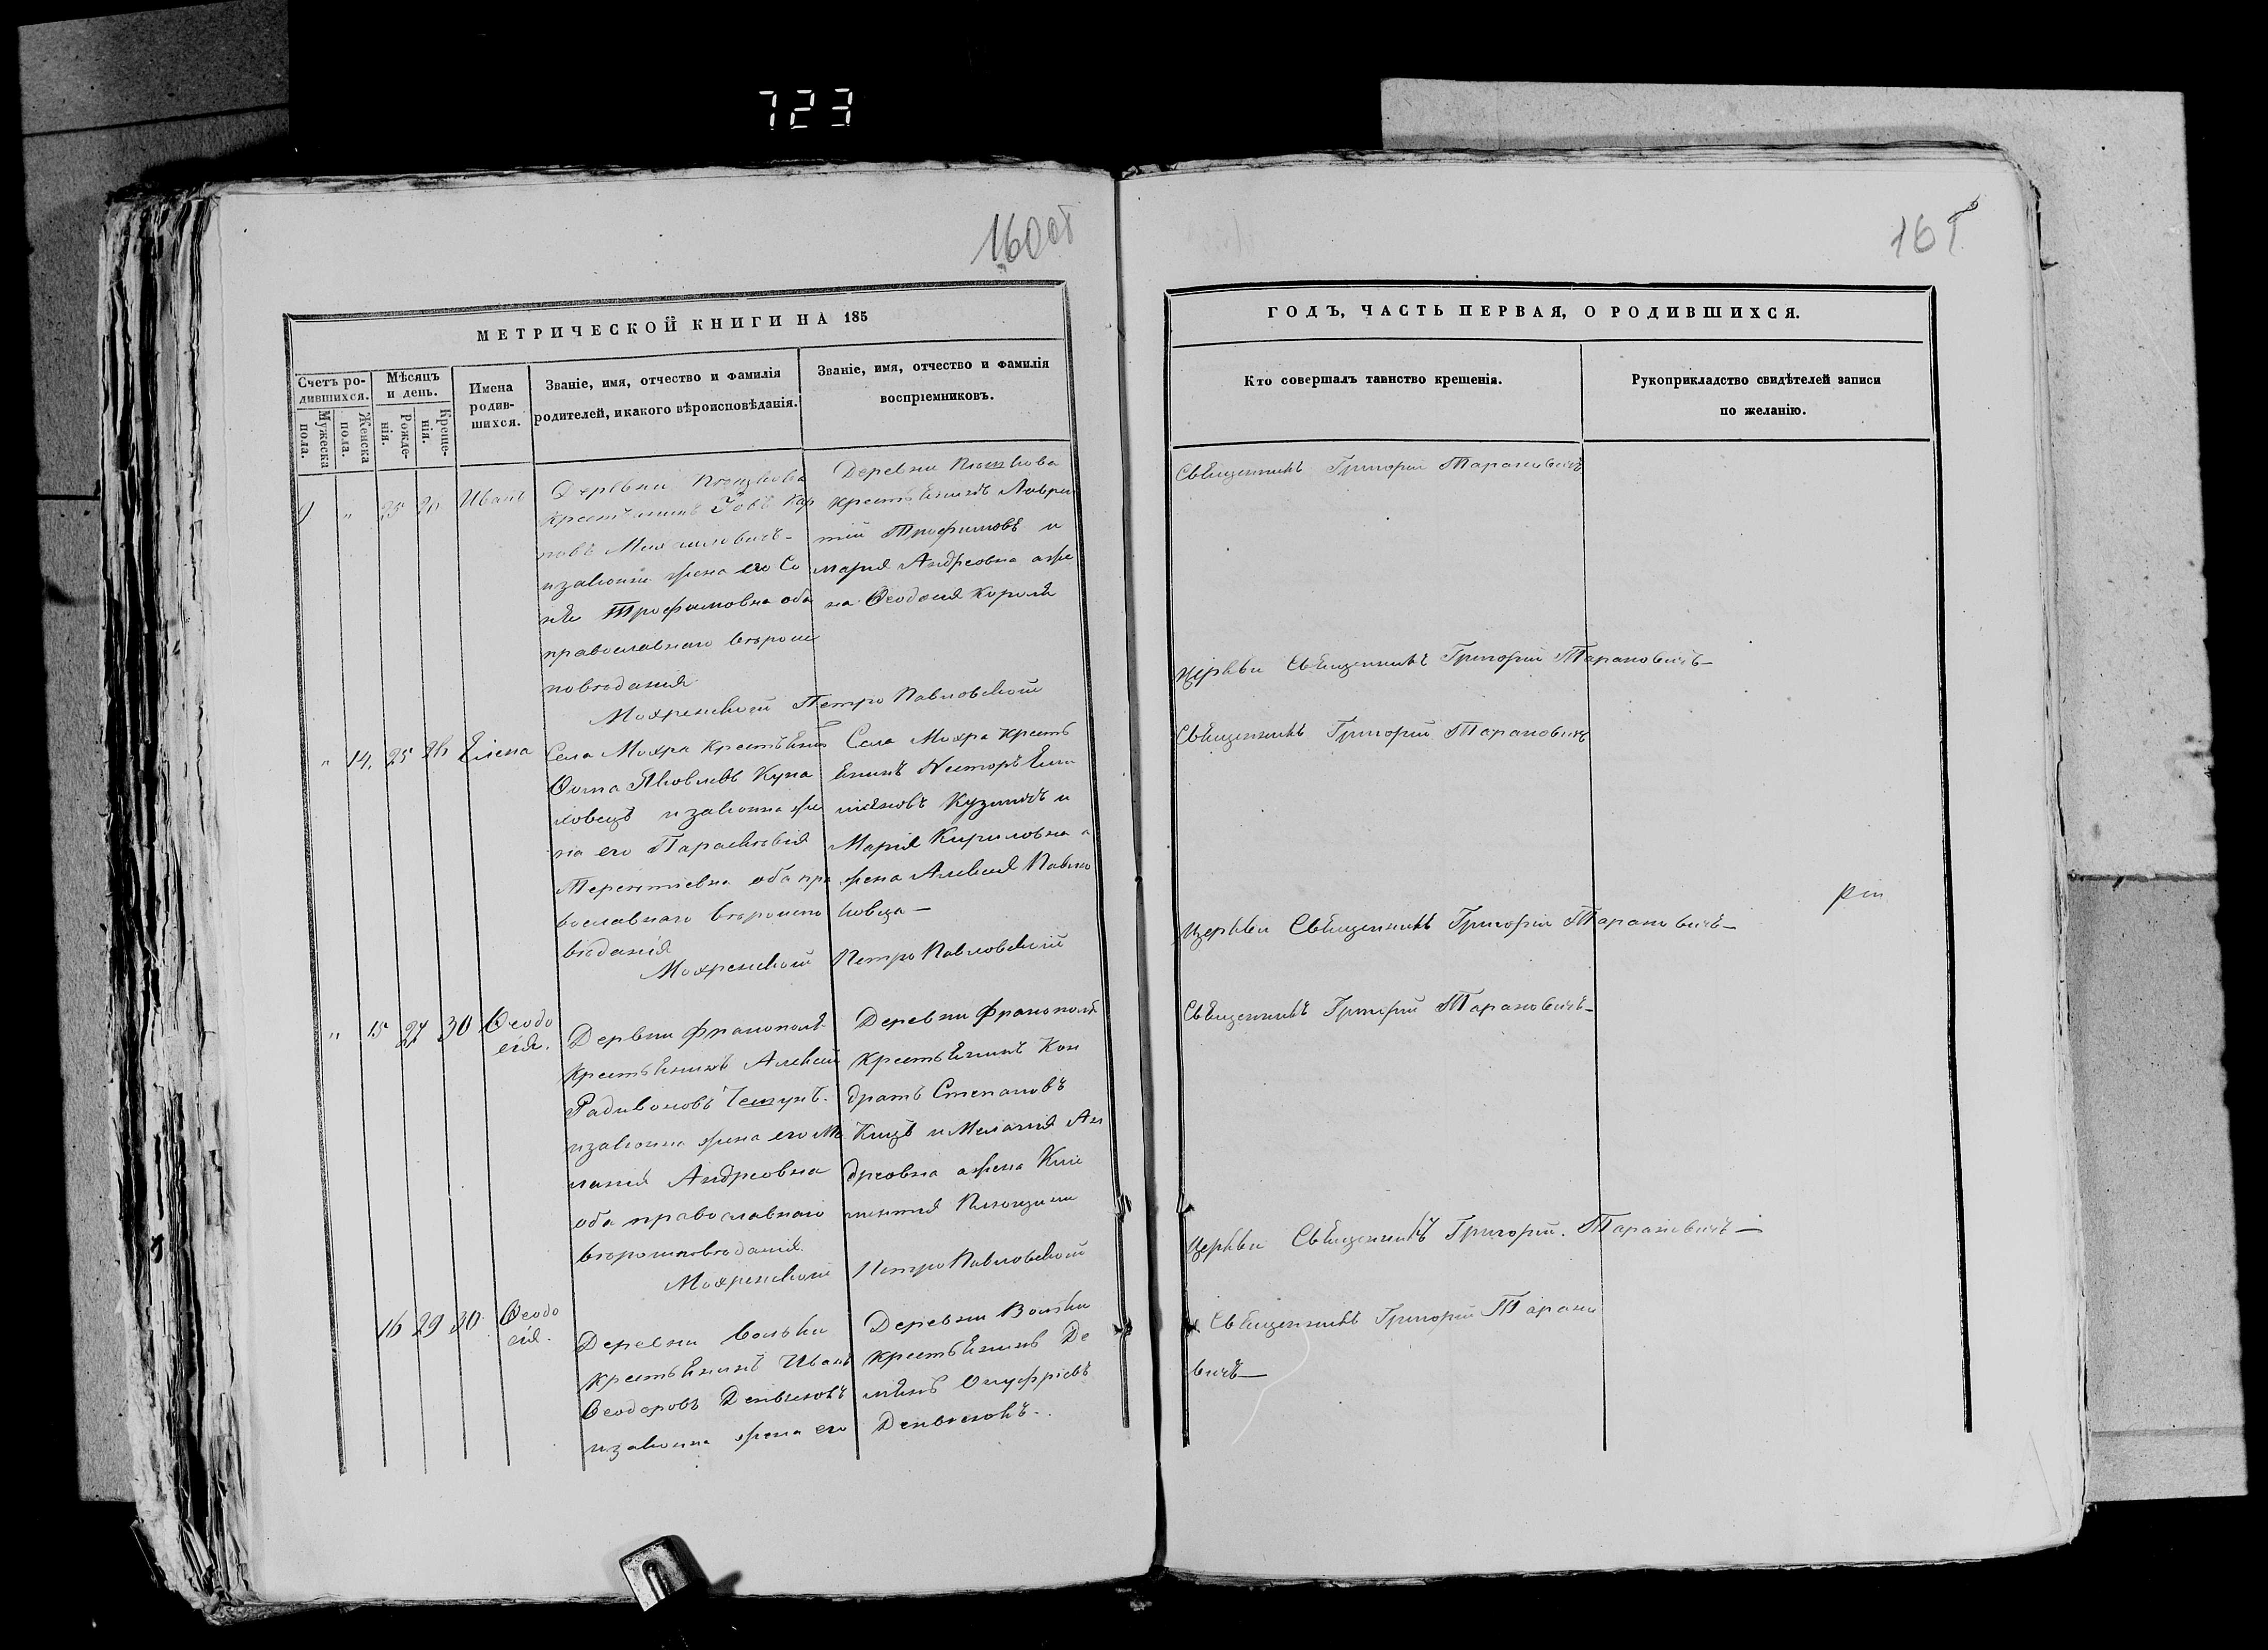 723
160 об
МЕТРИЧЕСКОЙ КНИГИ НА 185
Счетъ ро-
дившихся.
Мужеска
пола.
Женска
пола.
Мѣсяцъ
и день.
Рожде-
нія.
Креще-
нія.
Имена
родив-
шихся.
Званіе, имя, отчество и фамилія
родителей, и какого вѣроисповѣданія.
Званіе, имя, отчество и фамилія
воспріемниковъ.
9 " 25 26 Иванъ
Деревни
крестьянинъ Іовъ Кар
повъ
изаконна жена его Со
Трофимовна оба
православнаго вѣроис
повѣданія
Деревни
крестьянинъ Лаврен
тій Трофимовъ и
марія Андреовна аже
на Ѳеодосія Короля
Мохренской Петро Павловской
" 14. 25 26 Елена
Села Мохра крестьянинъ
Ѳома Яковлевъ
изаконна же
на его Параскевія
Терентіевна оба пра
вославнаго вѣроиспо
вѣданія
Села Мохра кресть
янинъ Несторъ
Кузмичъ и
Марія Кириловна а
жена Алексія Павлю
ковца —
Мохренской Петро Павловской
" 15 27 30 Ѳеодо
сія.
Дервни Франополя
крестьянинъ Алексій
Радивоновъ
изаконна жена его Ме
ланія Андреовна
оба православнаго
вѣроисповѣданія.
Деревни Франополя
крестьянинъ Кон
дратъ Степановъ
Куцъ и Меланія Ан
древна ажена Кли
ментія
Мохренской Петро Павловской
16 29 30 Ѳеодо
сія.
Деревни Вольки
крестьянинъ Иванъ
Ѳеодоровъ
изаконна жена его
Деревни Вольки
крестьянинъ Де
міянъ Онуфріевъ
ГОДЪ, ЧАСТЬ ПЕРВАЯ, О РОДИВШИХСЯ.
Кто совершалъ таинство крещенія.
Рукоприкладство свидѣтелей записи
по желанію.
Священникъ Григорій Тарановичъ
Церкви Священникъ Григорій Тарановичъ —
Священникъ Григорій Тарановичъ
Церкви Священникъ Григорій Тарановичъ —
Священникъ Григорій Тарановичъ —
Церкви Священникъ Григорій Тарановичъ —
Священникъ Григорій Тарано
вичъ —